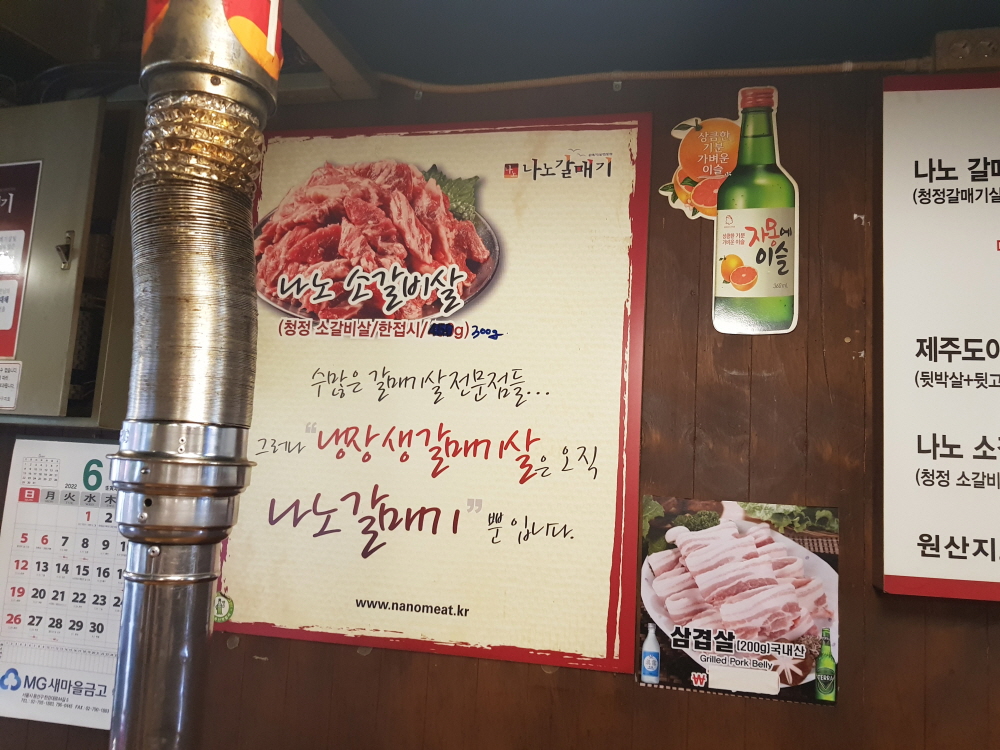 나노갈매기
나노 소갈비살
(청정 소갈비살/한접시/ g) 300g
수많은 갈매기살 전문점들...
그러나 “냉장 생갈매기살은 오직
나노갈매기” 뿐 입니다.
www.nanomeat.kr
상큼한
기분
가벼운
이슬
상큼한 기분
가벼운 이슬
자몽에
이슬
360mL
삼겹살 (200g)국내산
Grilled Pork Belly
₩
TERRA
나노 갈매
(청정갈매기살
제주도야
(뒷박살+뒷고
나노 소갈
(청정 소갈비
원산지
기
2022
6
日 月 火 水 木
1 2
5 6 7 8 9
12 13 14 15 16
19 20 21 22 23 24
26 27 28 29 30
MG 새마을금고